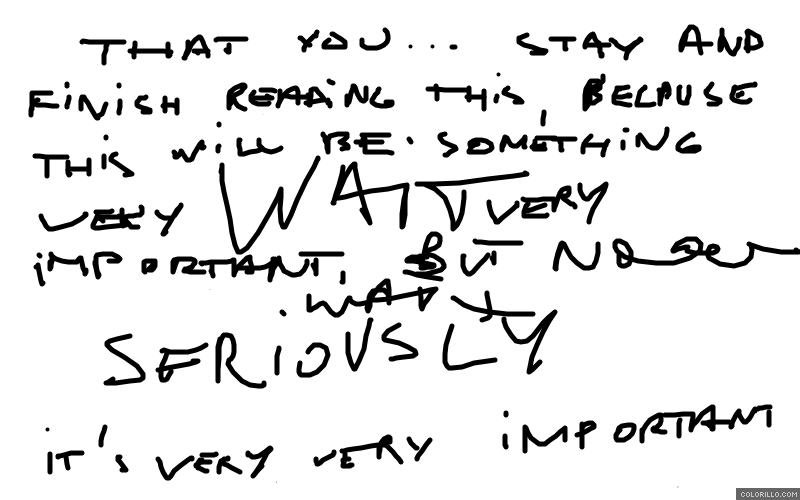 THAT YOU... ... STAY AND
FiNiSH READING THiS, BECAUSE
THiS WiLL BE. SOMETHiNG
VERY WAIT VERY
iMPORTANT, BUT
WAIT
SERiOUSLY
iT'S VERY VERY iMPORTANT
COLORILLO.COM